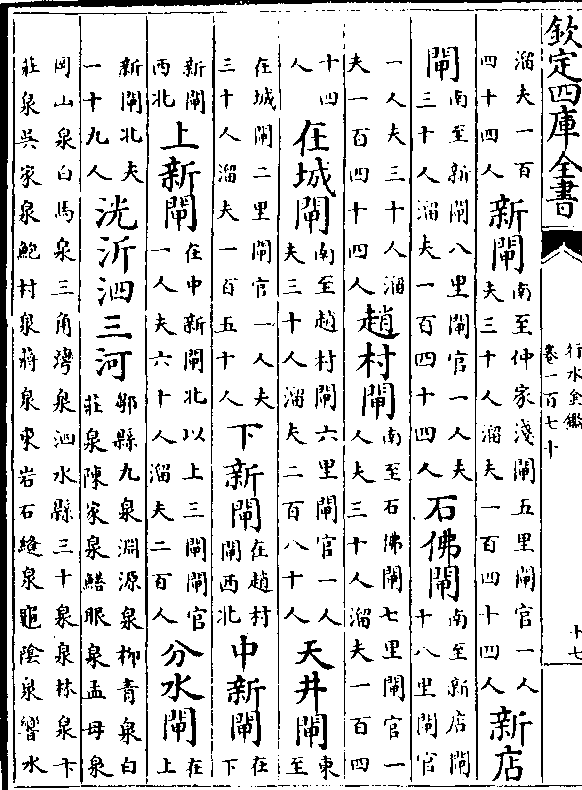 欽定四庫全書
行水金鑑
卷一百七十
十七
溜夫一百四十四人新閘南至仲家淺閘五里閘官一人夫三十人溜夫一百四十四人新店
閘南至新閘八里閘官一人夫三十人溜夫一百四十四人石佛閘南至新店閘十八里閘官
一人夫三十人溜夫一百四十四人趙村閘南至石佛閘七里閘官一人夫三十人溜夫一百四
十四人在城閘南至趙村閘六里閘官一人夫三十人溜夫二百八十人天井閘東至
在城閘二里閘官一人夫三十人溜夫一百五十人下新閘在趙村閘西北中新閘在下
新閘西北上新閘在中新閘北以上三閘閘官一人夫六十人溜夫二百人分水閘在上
新閘北夫一十九人洸沂泗三河鄒縣九泉淵源泉柳青泉白莊泉陳家泉鱔眼泉孟母泉
岡山泉白馬泉三角灣泉泗水縣三十泉泉林泉卞莊泉吳家泉鮑村泉蔣泉東岩石縫泉龜陰泉響水